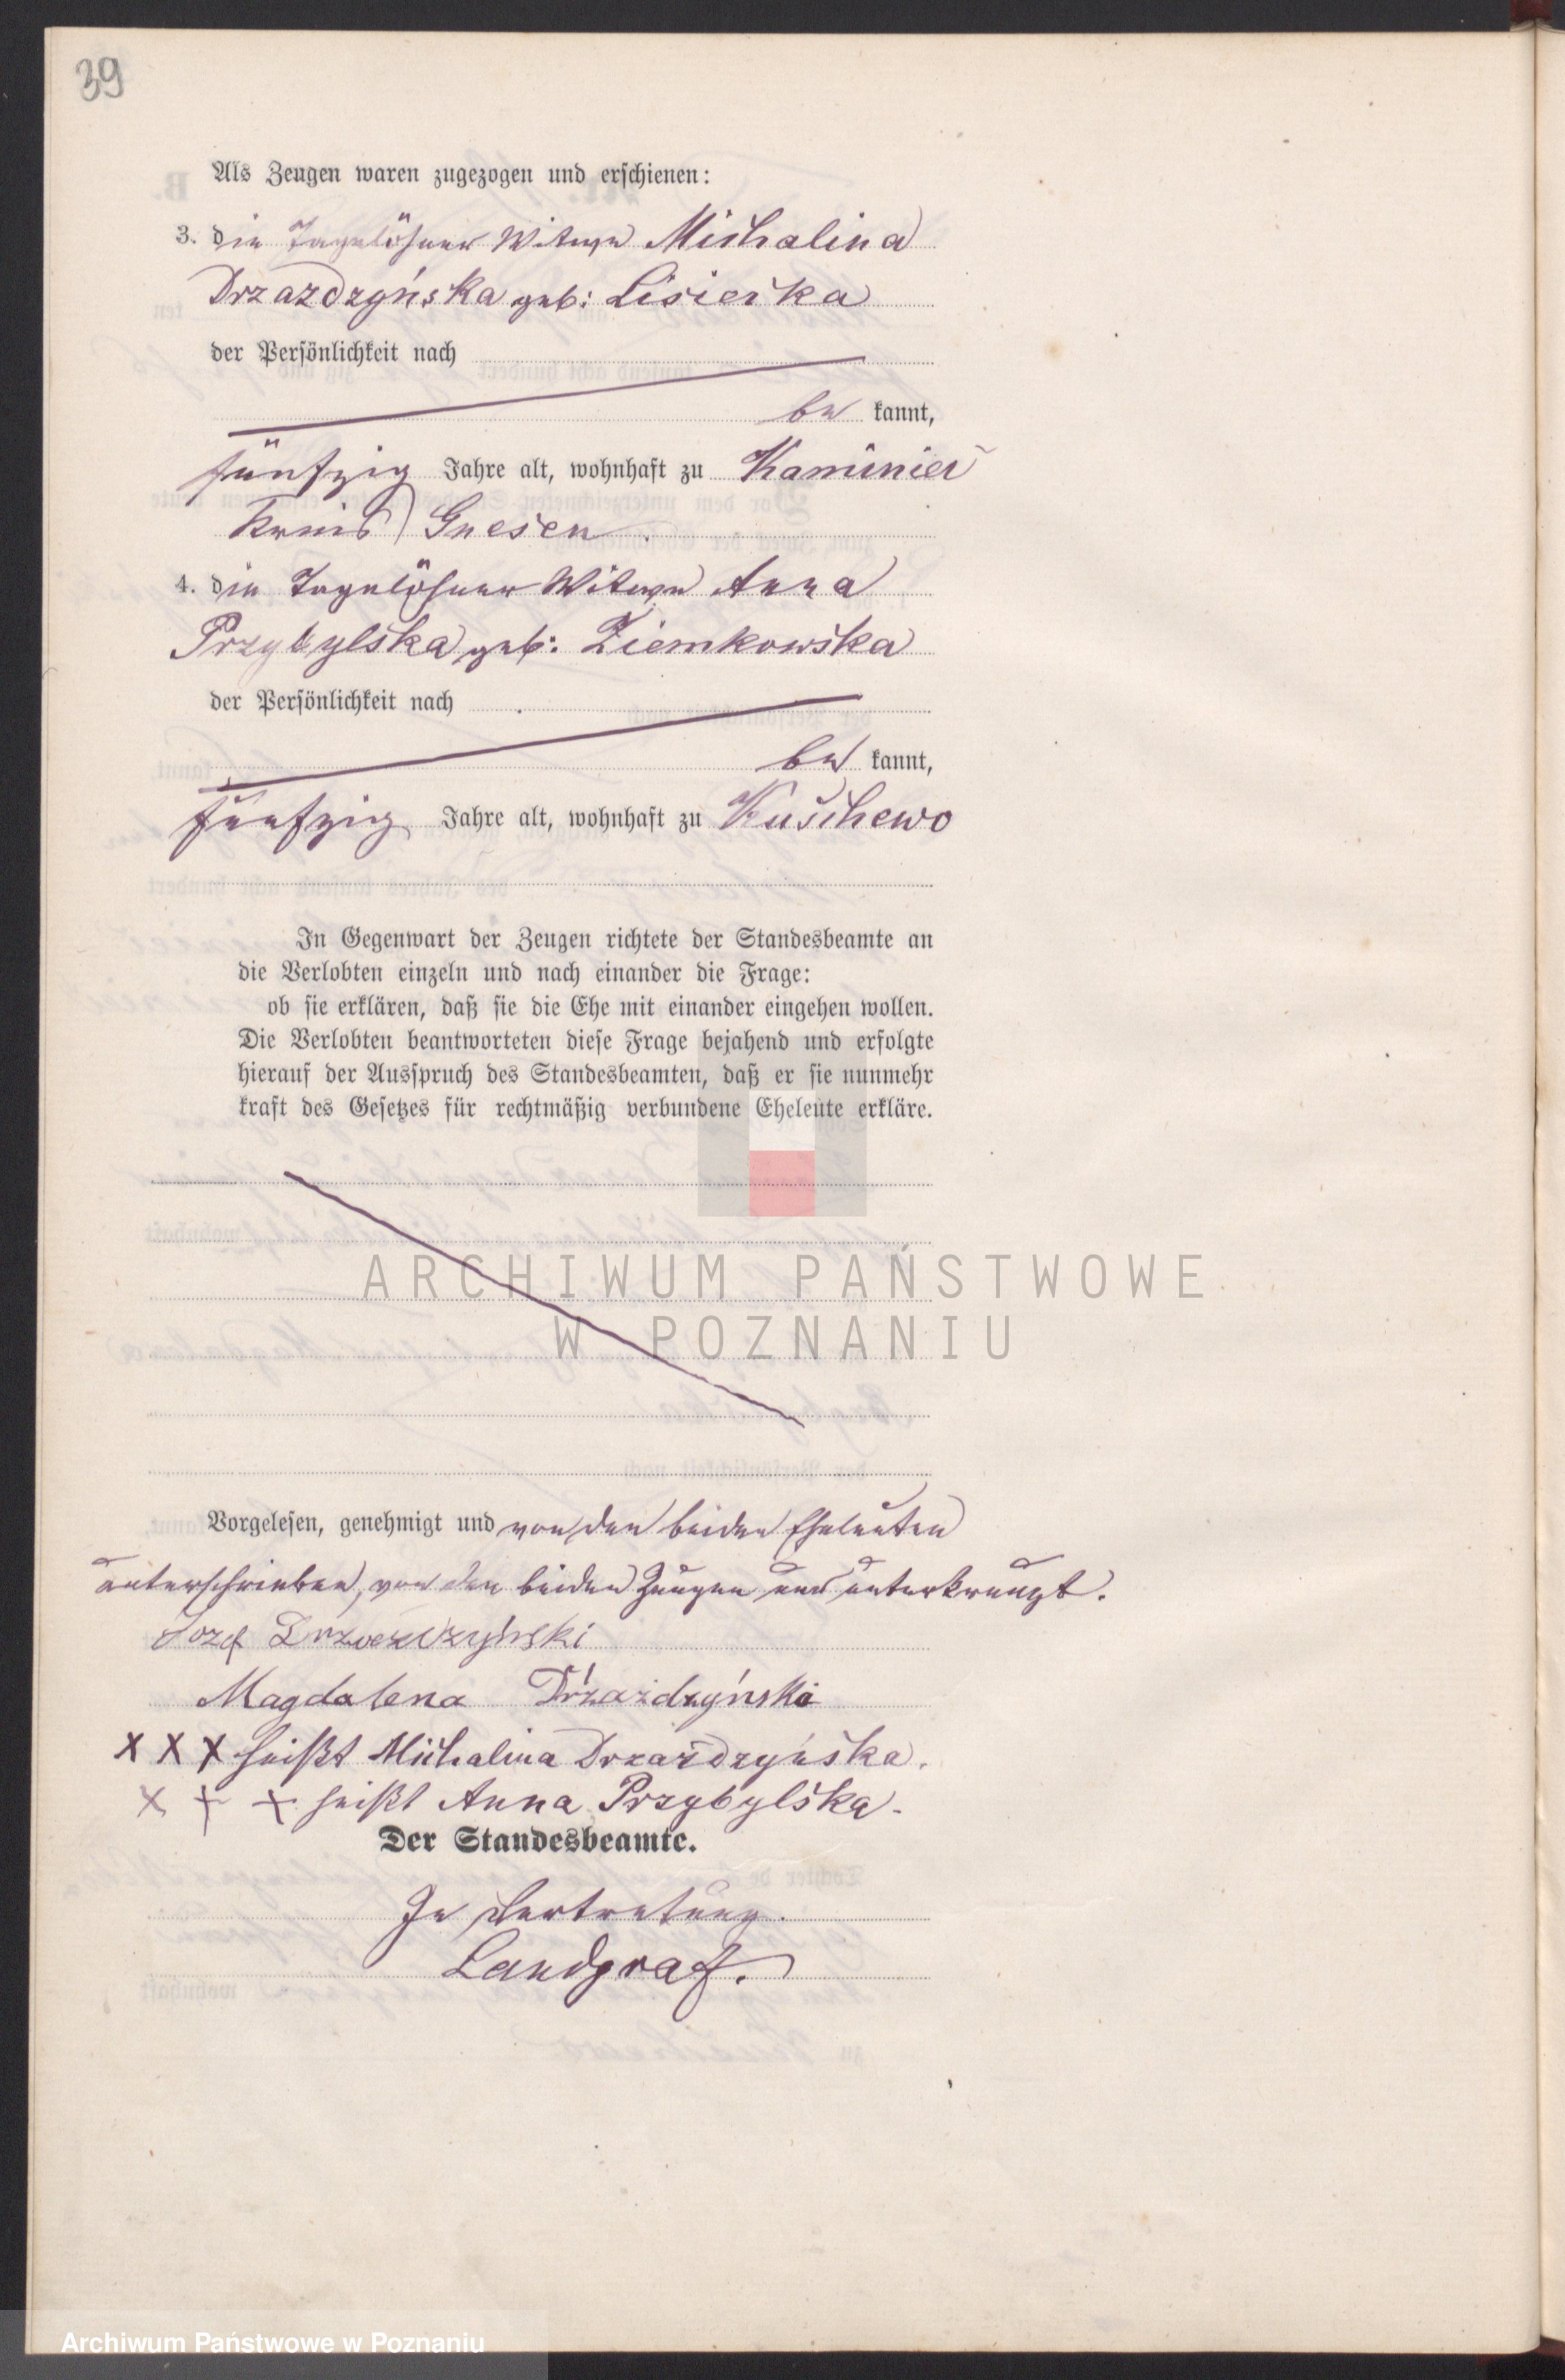 39
Als Zeugen waren zugezogen und erschienen:
3. die Tagelöhner Witwe Michalina
Drzazdzyńska geb: Lisiecka
der Persönlichkeit nach
be kannt,
fünfzig Jahre alt, wohnhaft zu Kaminiec
Kreis Gnesen.
4. die Tagelöhner Witwe Anna
Przybylska geb: Ziemkowska
der Persönlichkeit nach
be kannt,
fünfzig Jahre alt, wohnhaft zu Kuschewo
In Gegenwart der Zeugen richtete der Standesbeamte an
die Verlobten einzeln und nach einander die Frage:
ob sie erklären, daß sie die Ehe mit einander eingehen wollen.
Die Verlobten beantworteten diese Frage bejahend und erfolgte
hierauf der Ausspruch des Standesbeamten, daß er sie nunmehr
kraft des Gesetzes für rechtmäßig verbundene Eheleute erkläre.
ARCHIWUM PAŃSTWOWE
W POZNANIU
Vorgelesen, genehmigt und von den beiden Eheleuten
unterschrieben, von den beiden Zeugen nur unterkreuzt.
Józef
Magdalena Drzazdzyńska
X X X heißt Michalina Drzazdzyńska.
X + + heißt Anna Przybylska.
Der Standesbeamte.
In Vertretung.
Landgraf.
Archiwum Państwowe w Poznaniu